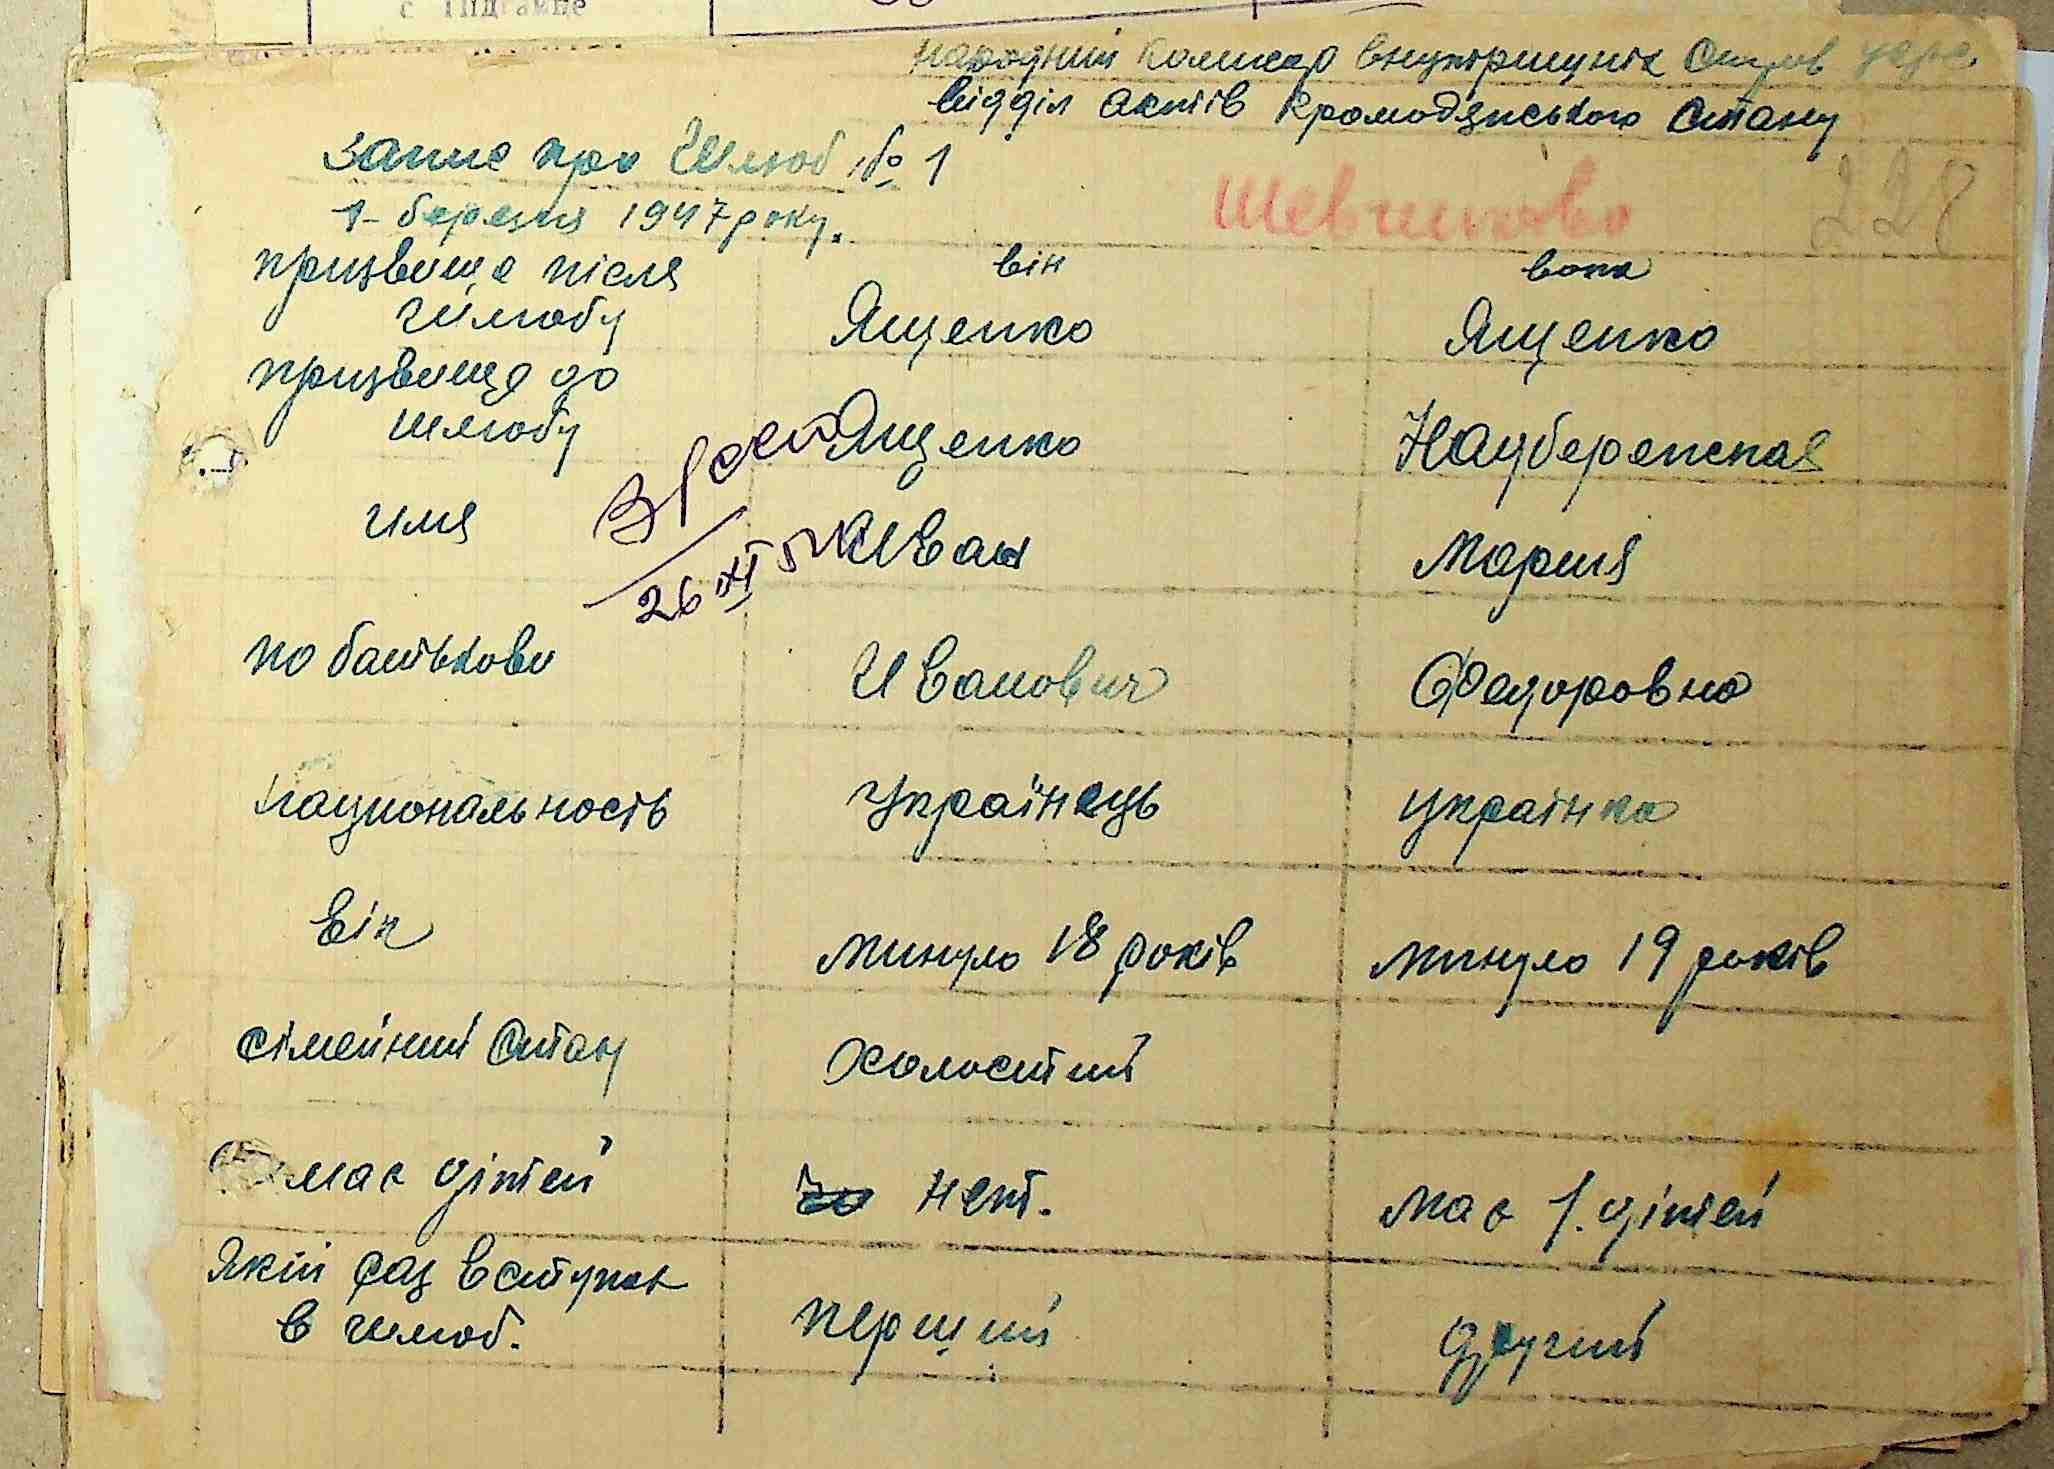 с
Народний Комисар Внутрішуніх Справ УССР.
Відділ актів Кромодянського стану
Запис про Шлюб № 1
1 березня 1947 року.
Шевченково
228
призвище після шлюбу
він
вона
Ященко
Ященко
призвище до шлюбу
Ященко
Наубереженская
имя
Иван
Мория
26 XI 51
по батькови
Иванович
Федоровна
национальность
Українець
українка
Вік
минуло 18 років
минуло 19 років
сімейний стан
холостий
має дітей
нет.
має 1. дітей
Який раз вступає в шлюб.
перший
другий